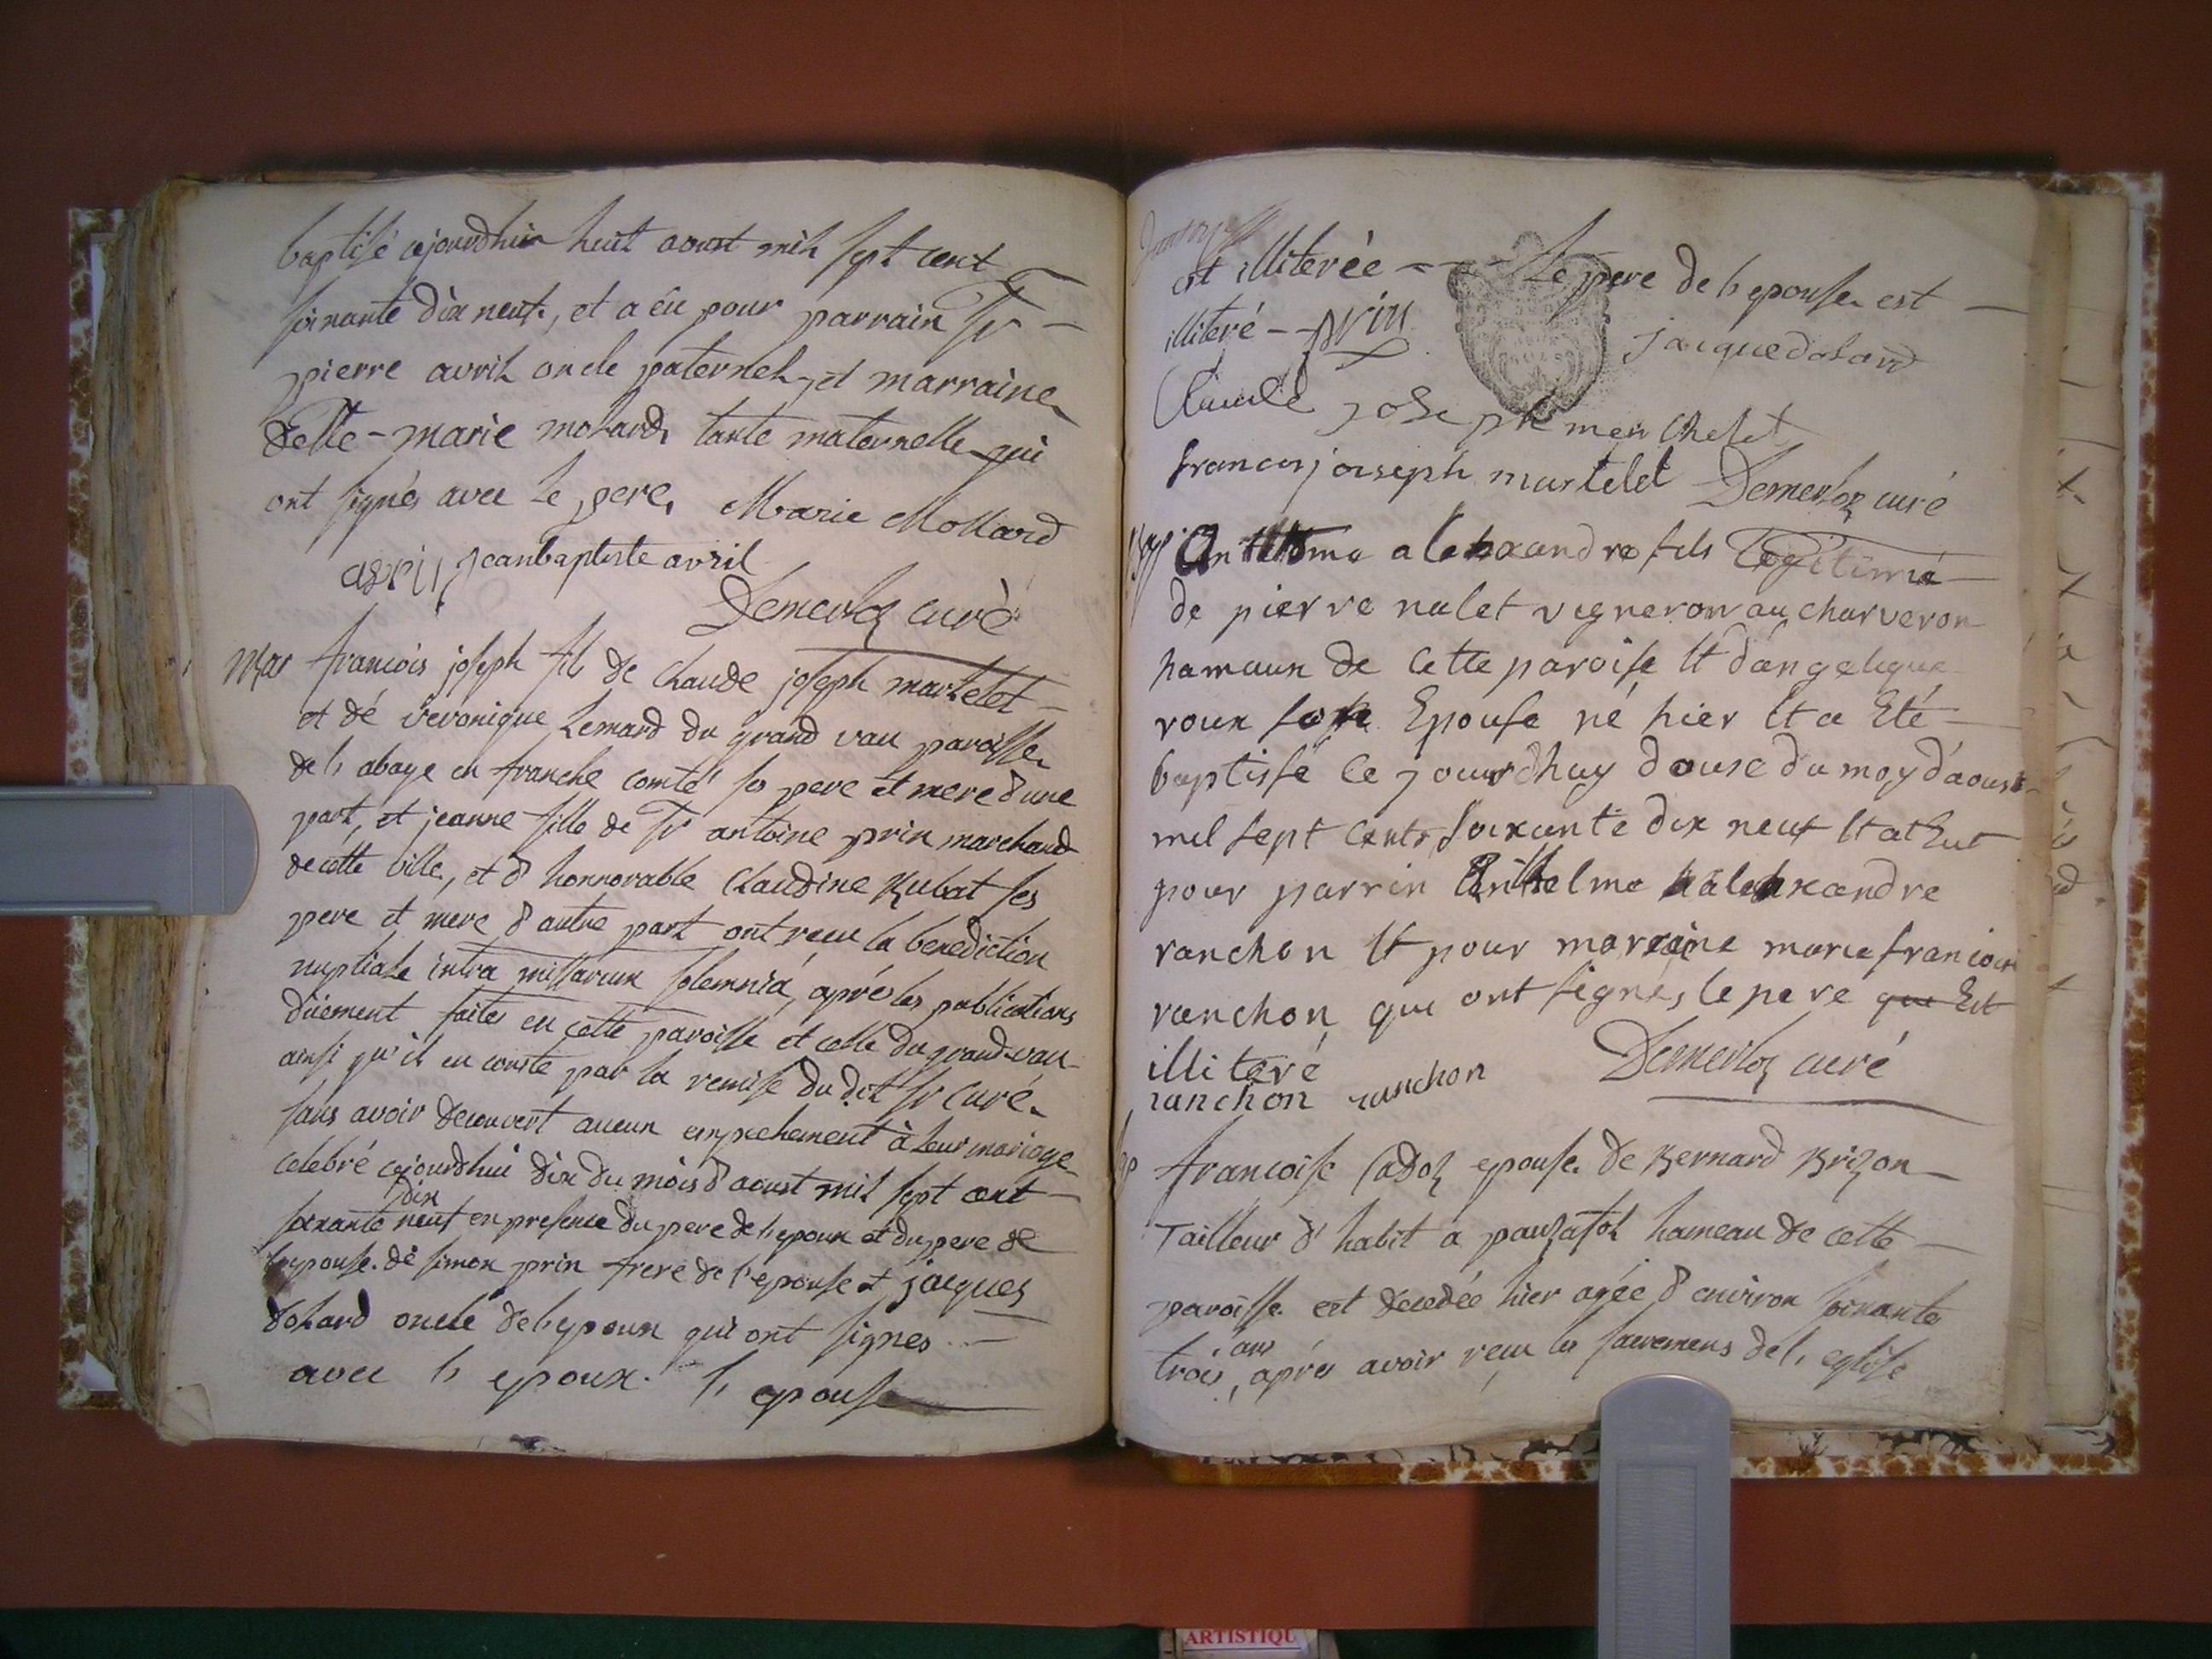 baptisé cejourdhui huit aoust mil sept cent
soixante dix neuf, et a eu pour parrain Sr
pierre avril oncle paternel, et marraine
delle - marie molard tante maternelle qui
ont signés avec le pere, Marie Mollard
avril jeanbaptiste avril
Demerloz curé
mar francois joseph fils de claude joseph martelet
et de veronique Lemard du grand vau paroisse
de l'abaye en franche comté ses pere et mere d'une
part, et jeanne fille de Sr antoine prin marchand
de cette ville, et d'honnorable claudine Rubat ses
pere et mere d'autre part ont reçu la benediction
nuptiale intra missarum solemnia, aprés les publications
düement faites en cette paroisse et celle du grand-vau
ainsi qu'il en conste par la remise du dit Sr curé
sans avoir decouvert aucun empechement à leur mariage
celebré cejourdhui dix du mois d'aoust mil sept cent
soixante dix neuf en presence du pere de l'epoux et du pere de
l'epouse. de simon prin frere de l'epouse et jacques
dolard oncle de l'epoux qui ont signes
avec l'epoux. l'epouse
est illiterée - - - Le pere de l'epouse est
illiteré - prin jacquedolard
Claude joseph martelet
francois joiseph martelet Demerloz curé
Anthelme alexandre fils Legitime
de pierre nalet vigneron au charveron
hamaux de cette paroise Et d'angelique
roux son Epouse né hier Et a Eté
baptissé ce jourdhuy douse du moy d'aoust
mil sept cents soixante dix neuf Et at Eut
pour parrin Anthelme alexandre
ranchon Et pour marraine marie francoise
ranchon qui ont signés, le pere que Est
illiteré Demerloz curé
ranchon ranchon
francoise Cadoz epouse de Bernard Brizon
Tailleur d'habit a hameau de cette
paroisse est decedée hier agée d'environ soixante
trois ans, aprés avoir reçu les sacremens de l'eglise
ARTISTIQU